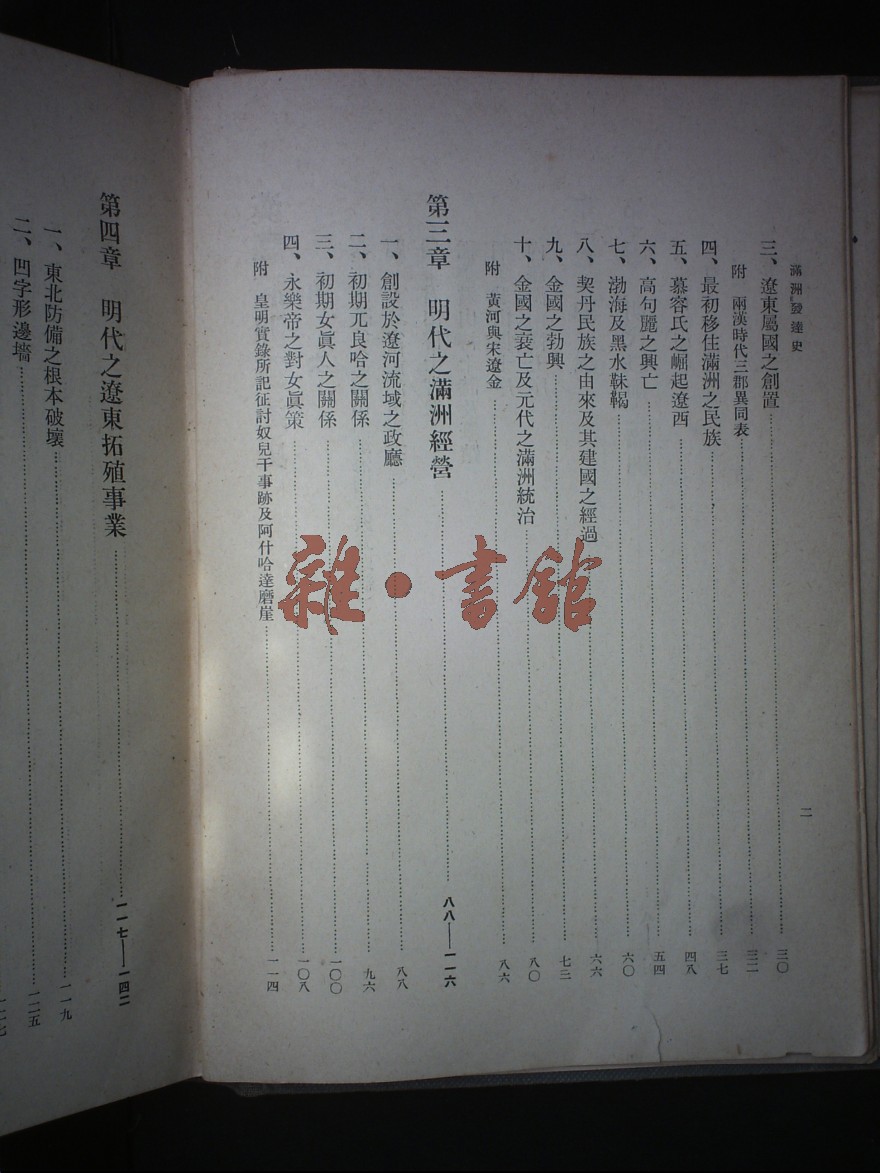 滿洲發達史
二
三、遼東屬國之創置 三〇
附 兩漢時代三郡異同表 三二
四、最初移住滿洲之民族 三七
五、慕容氏之崛起遼西 四八
六、高句麗之興亡 五四
七、渤海及黑水靺鞨 六〇
八、契丹民族之由來及其建國之經過 六六
九、金國之勃興 七三
十、金國之衰亡及元代之滿洲統治 八〇
附 黃河與宋遼金 八六
第三章 明代之滿洲經營 八八——一一六
一、創設於遼河流域之政廳 八八
二、初期兀良哈之關係 九六
三、初期女眞人之關係 一〇〇
四、永樂帝之對女眞策 一〇八
附 皇明實錄所記征討奴兒干事跡及阿什哈達磨崖 一一四
第四章 明代之遼東拓殖事業 一一七——一四二
一、東北防備之根本破壞 一一九
二、凹字形邊墻 一二五
雜·書館